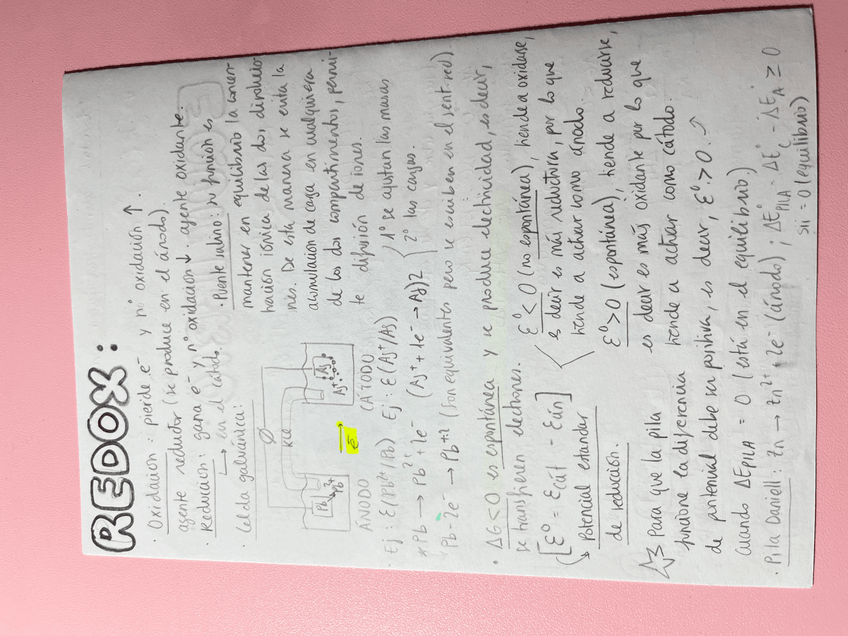 REDOX:
· Oxidación: pierde e⁻ y nº oxidación ↑.
agente reductor (se produce en el ánodo)
· Reducción: gana e⁻ y nº oxidación ↓. agente oxidante.
↳ en el cátodo.
· Celda galvánica:
KCl
Pb
Pb²⁺
Ag
Ag⁺
e⁻
ÁNODO CÁTODO
· Puente salino: su función es
mantener en equilibrio la concen-
tración iónica de las dos disolucio-
nes. De esta manera se evita la
acumulación de carga en cualquiera
de los dos compartimentos, permi-
te difusión de iones.
· Ej: ε(Pb²⁺/Pb) Ej: ε(Ag⁺/Ag)
* Pb → Pb²⁺ + 2e⁻ (Ag⁺ + 1e⁻ → Ag)2
1º se ajustan las masas
2º las cargas.
Pb - 2e⁻ → Pb+2 (son equivalentes pero se escriben en el sent. red).
· ΔG < 0 es espontánea y se produce electricidad, es decir,
se transfieren electrones.
[ε⁰ = εcát - εán]
↳ Potencial estandar
de reducción.
ε⁰ < 0 (no espontánea), tiende a oxidarse,
es decir es más reductora, por lo que
tiende a actuar como ánodo.
ε⁰ > 0 (espontánea), tiende a reducirse,
es decir es más oxidante por lo que
tiende a actuar como cátodo.
Para que la pila
funcione la diferencia
de potencial debe ser positiva, es decir, ε⁰ > 0.
Cuando ΔE PILA = 0 (está en el equilibrio.)
· Pila Daniell: Zn → Zn²⁺ + 2e⁻ (ánodo); ΔE°PILA = ΔE°C - ΔE°A ≥ 0
sii = 0 (equilibrio)